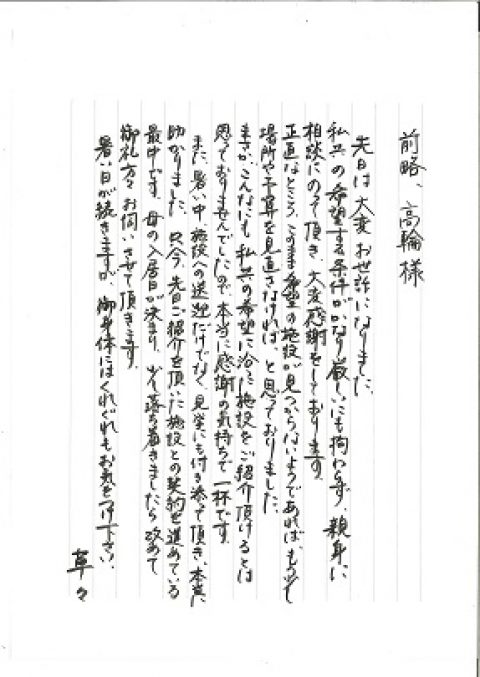 前略、高輪様
先日は大変お世話になりました。
私共の希望する条件がかなり厳しいにも拘わらず、親身に
相談にのって頂き、大変感謝をしております。
正直なところ、このまま希望の施設が見つからないようであれば、もう少し
場所や予算を見直さなければ、と思っておりました。
まさか、こんなにも、私共の希望に沿った施設をご紹介頂けるとは
思っておりませんでしたので、本当に感謝の気持ちで一杯です。
また、暑い中、施設への送迎だけでなく、見学にも付き添って頂き、本当に
助かりました。只今、先日ご紹介を頂いた施設との契約を進めている
最中です。母の入居日が決まり、少し落ち着きましたら改めて、
御礼方々お伺いさせて頂きます。
暑い日が続きますが、御身体にはくれぐれもお気をつけ下さい。
草々